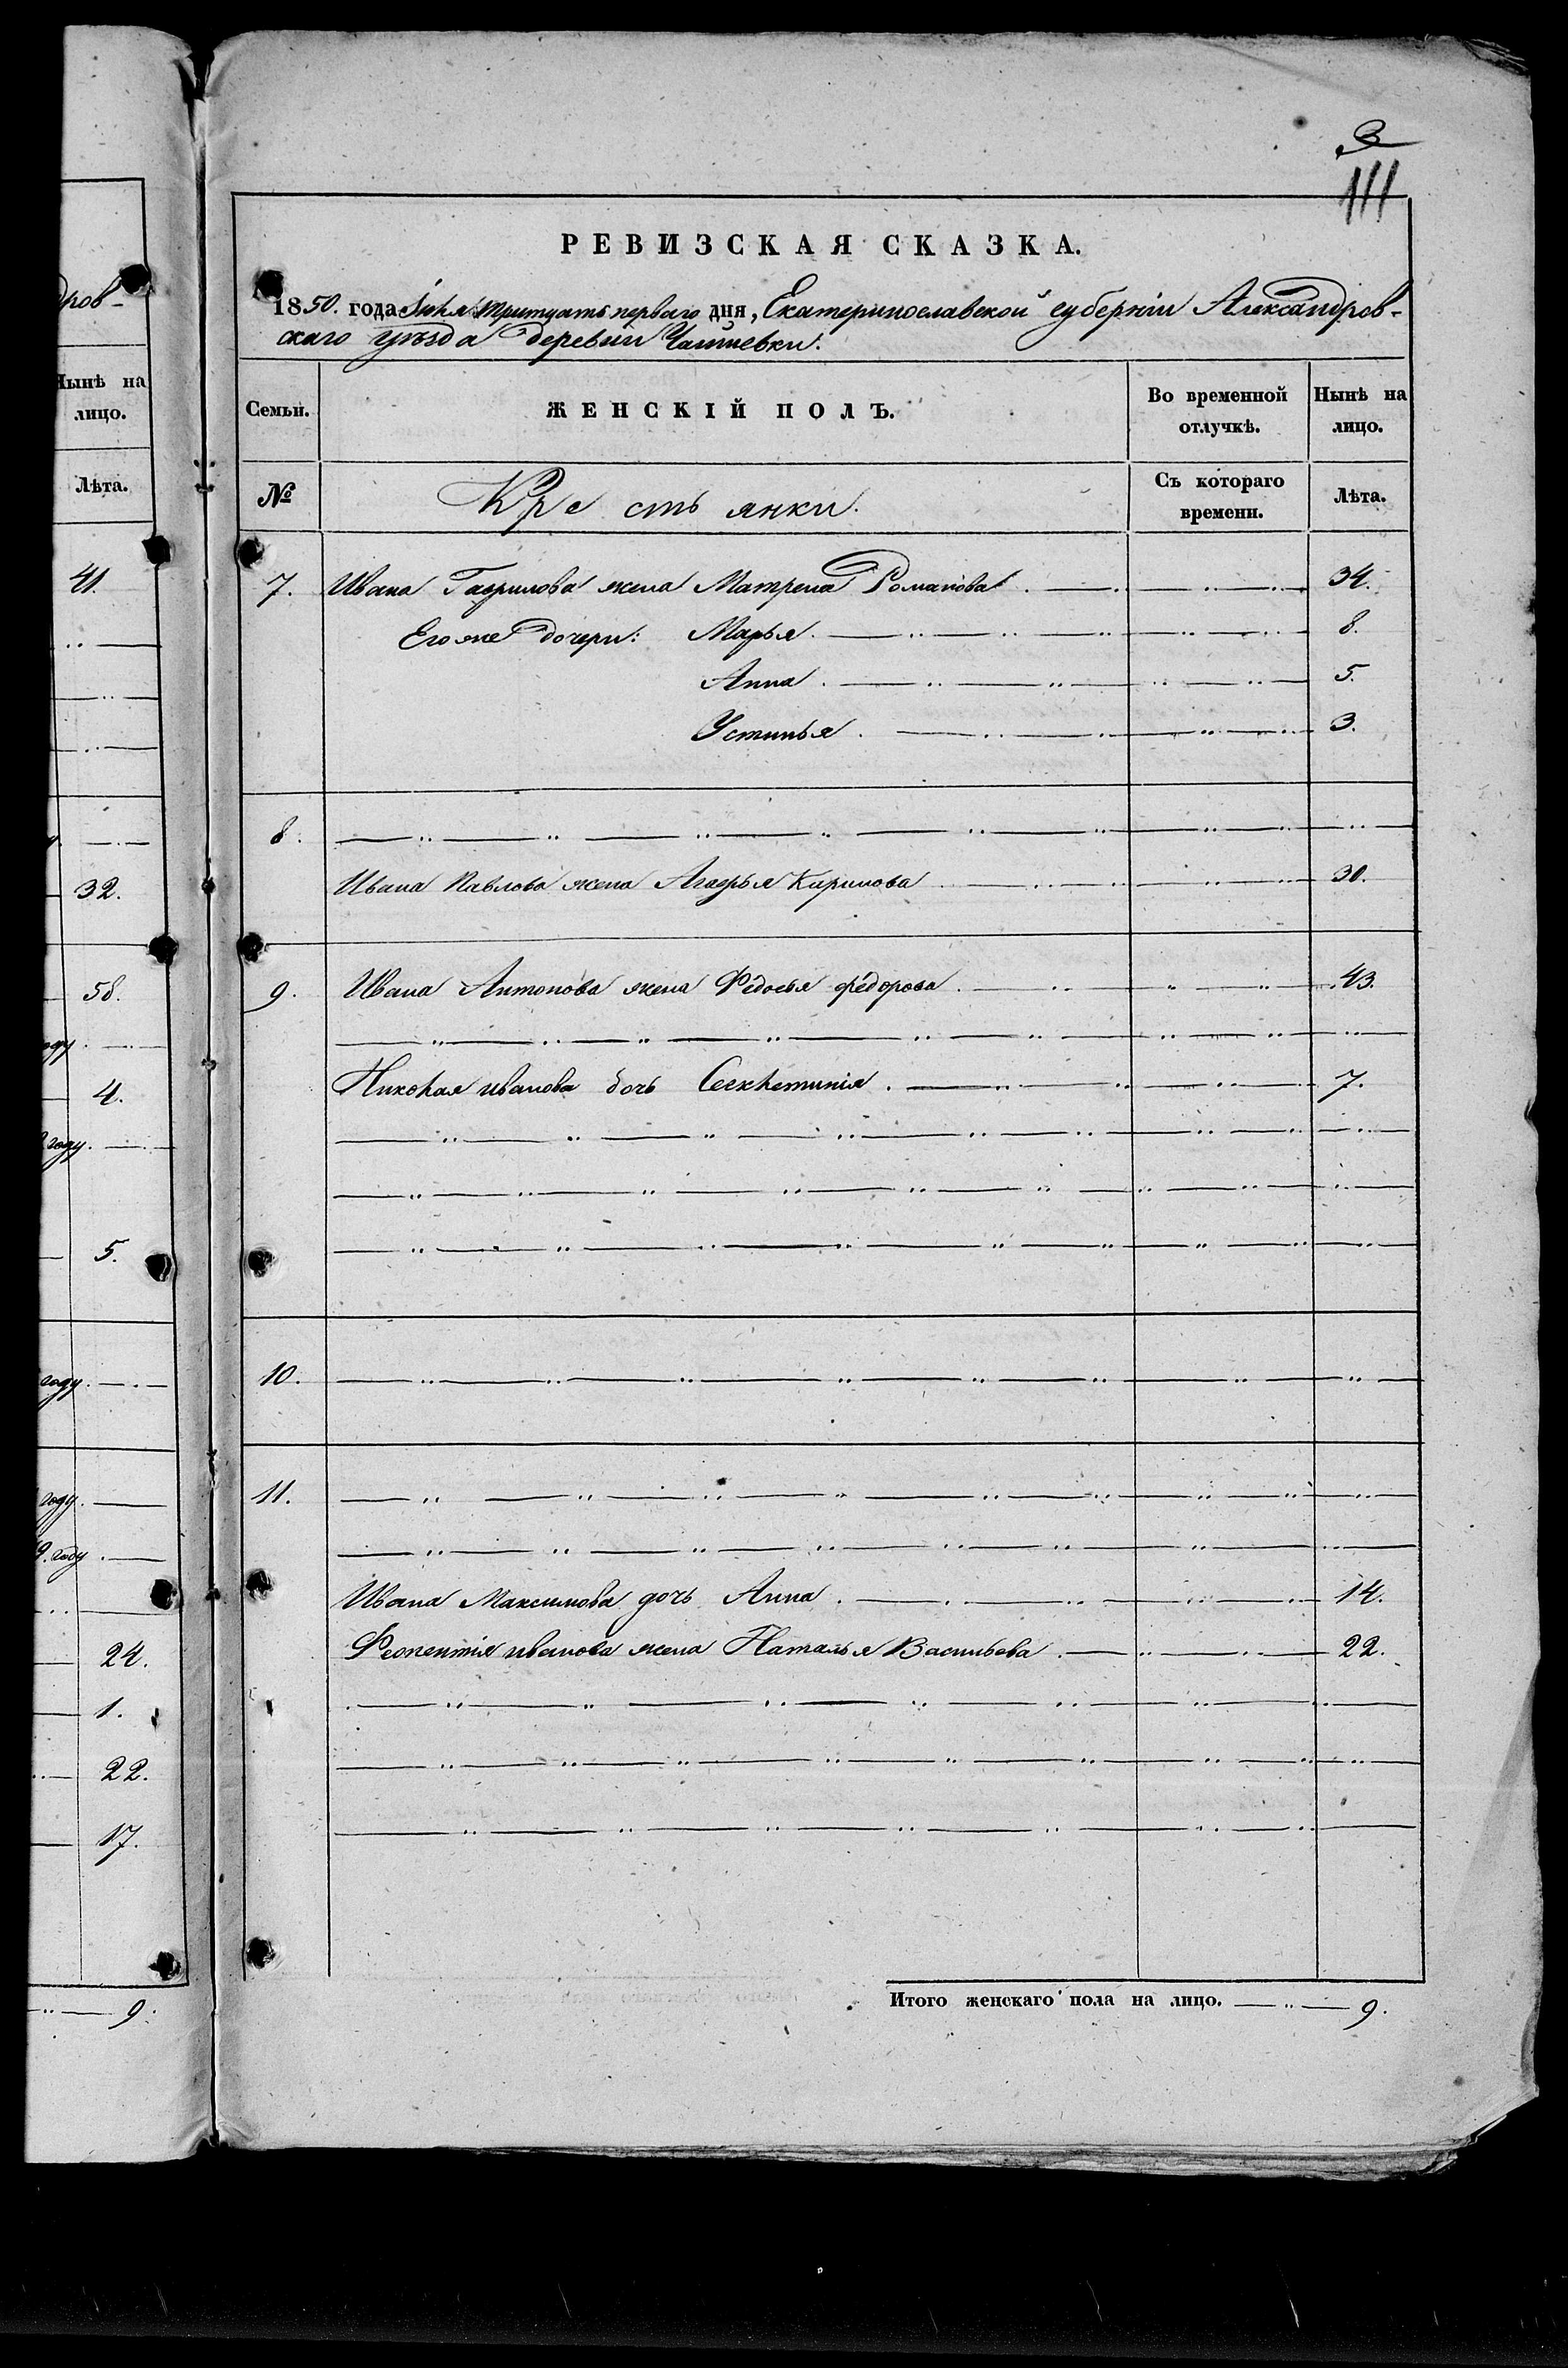 дров-
Нынѣ на
лицо.
Лѣта.
41.
32.
58.
году.
4.
году.
5.
году.
году.
9. году.
24.
1.
22.
17.
9.
3
111
РЕВИЗСКАЯ СКАЗКА.
1850. года Іюля тритцать перваго дня, Екатеринославской губерніи Александров-
скаго уѣзда деревни
Семьи.
ЖЕНСКІЙ ПОЛЪ.
Во временной отлучкѣ.
Нынѣ на лицо.
№
Крестьянки.
Съ котораго времени.
Лѣта.
7. Ивана Гаврилова жена Матрена Романова. 34.
Его же дочери: Марья. 8.
Анна. 5.
Устинья. 3.
8.
Ивана Павлова жена Агафья Кирилова 30.
9. Ивана Антонова жена Федосья Федорова. 43.
Николая Иванова дочь 7.
10.
11.
Ивана Максимова дочь Анна. 14.
Иванова жена Наталья Васильева. 22.
Итого женскаго пола на лицо. 9.